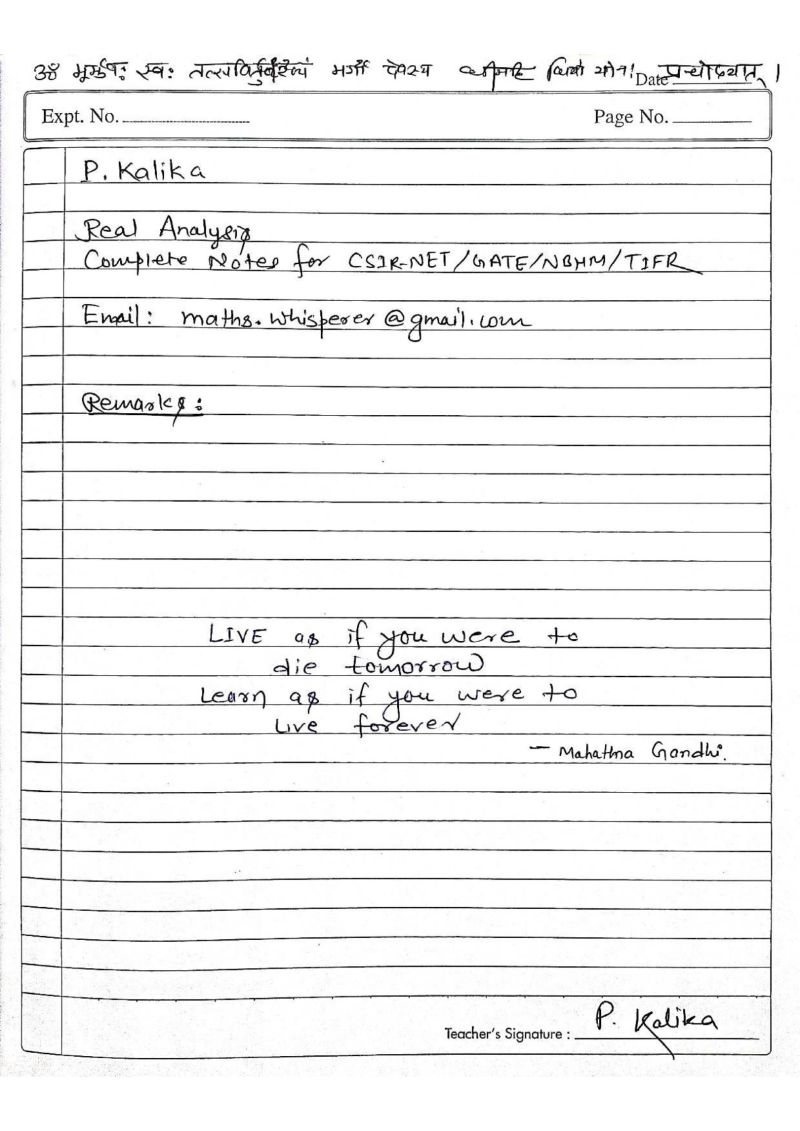 ॐ भूर्भुवः स्वः तत्सवितुर्वरेण्यं भर्गो देवस्य धीमहि धियो योनः प्रचोदयात् ।
Date
Expt. No.
Page No.
P. Kalika
Real Analysis
Complete Notes for CSIR-NET/GATE/NBHM/TIFR
Email: maths.whisperer@gmail.com
Remarks:
LIVE as if you were to
die tomorrow
Learn as if you were to
Live forever
— Mahatma Gandhi.
Teacher's Signature : P. Kalika